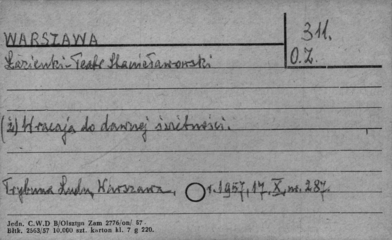 WARSZAWA
311.
O.Z.
Łazienki-Teatr Stanisławowski
(ż) Wracają do dawnej świetności.
Trybuna Ludu, Warszawa, r. 1957, 17. X, nr. 287.
Jedn. C.W.D B/Olsztyn Zam 2776/on/ 57
Bltk. 2563/57 10.000 szt. karton kl. 7 g 220.